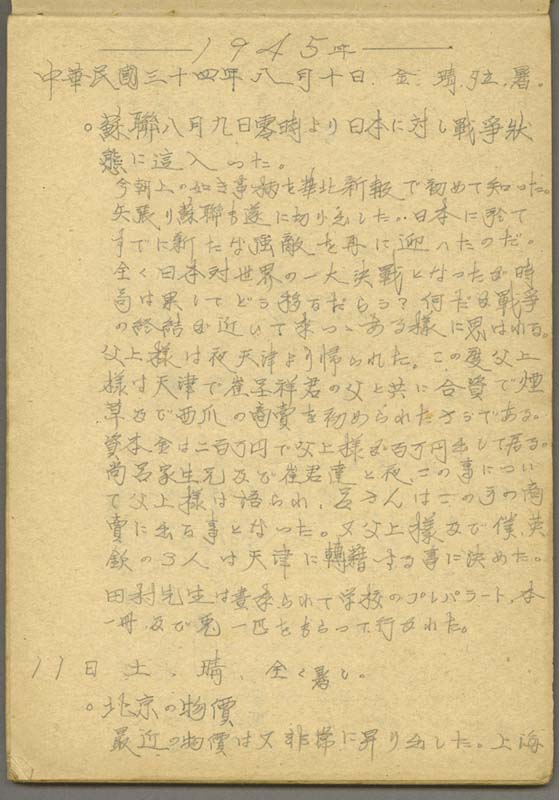 1945年
中華民國三十四年八月十日. 金. 晴. 暑.
○蘇聯八月九日零時より日本に対し戰爭狀
態に這入った。
今朝上の如き事柄を華北新報で初めて知った。
矢張り蘇聯も遂に切り出した。日本に於て
すでに新たな強敵を再に迎へたのだ。
全く日本対世界の一大決戰となったが時
局は果してどう移るだらう？何だか戰爭
の終結が近いて来つゝある様に思はれる。
父上様は夜天津より帰られた。この度父上
様は天津で崔呈祥君の父と共に合資で煙
草及び西瓜の商賣を初められたさうである。
資本金は二百万円で父上様が百万円出して居る。
尚呂家生兄及び崔君達と夜、この事につい
て父上様は語られ、呂さんはこの方の商
賣に出る事となった。又父上様及び僕、英
欽の3人は天津に轉籍する事に決めた。
田村先生は晝来られて学校のプレパラート、本
一冊、及び兎一匹をもらって行かれた。
11日 土. 晴. 全く暑し.
○北京の物價
最近の物價は又非常に昇り出した。上海